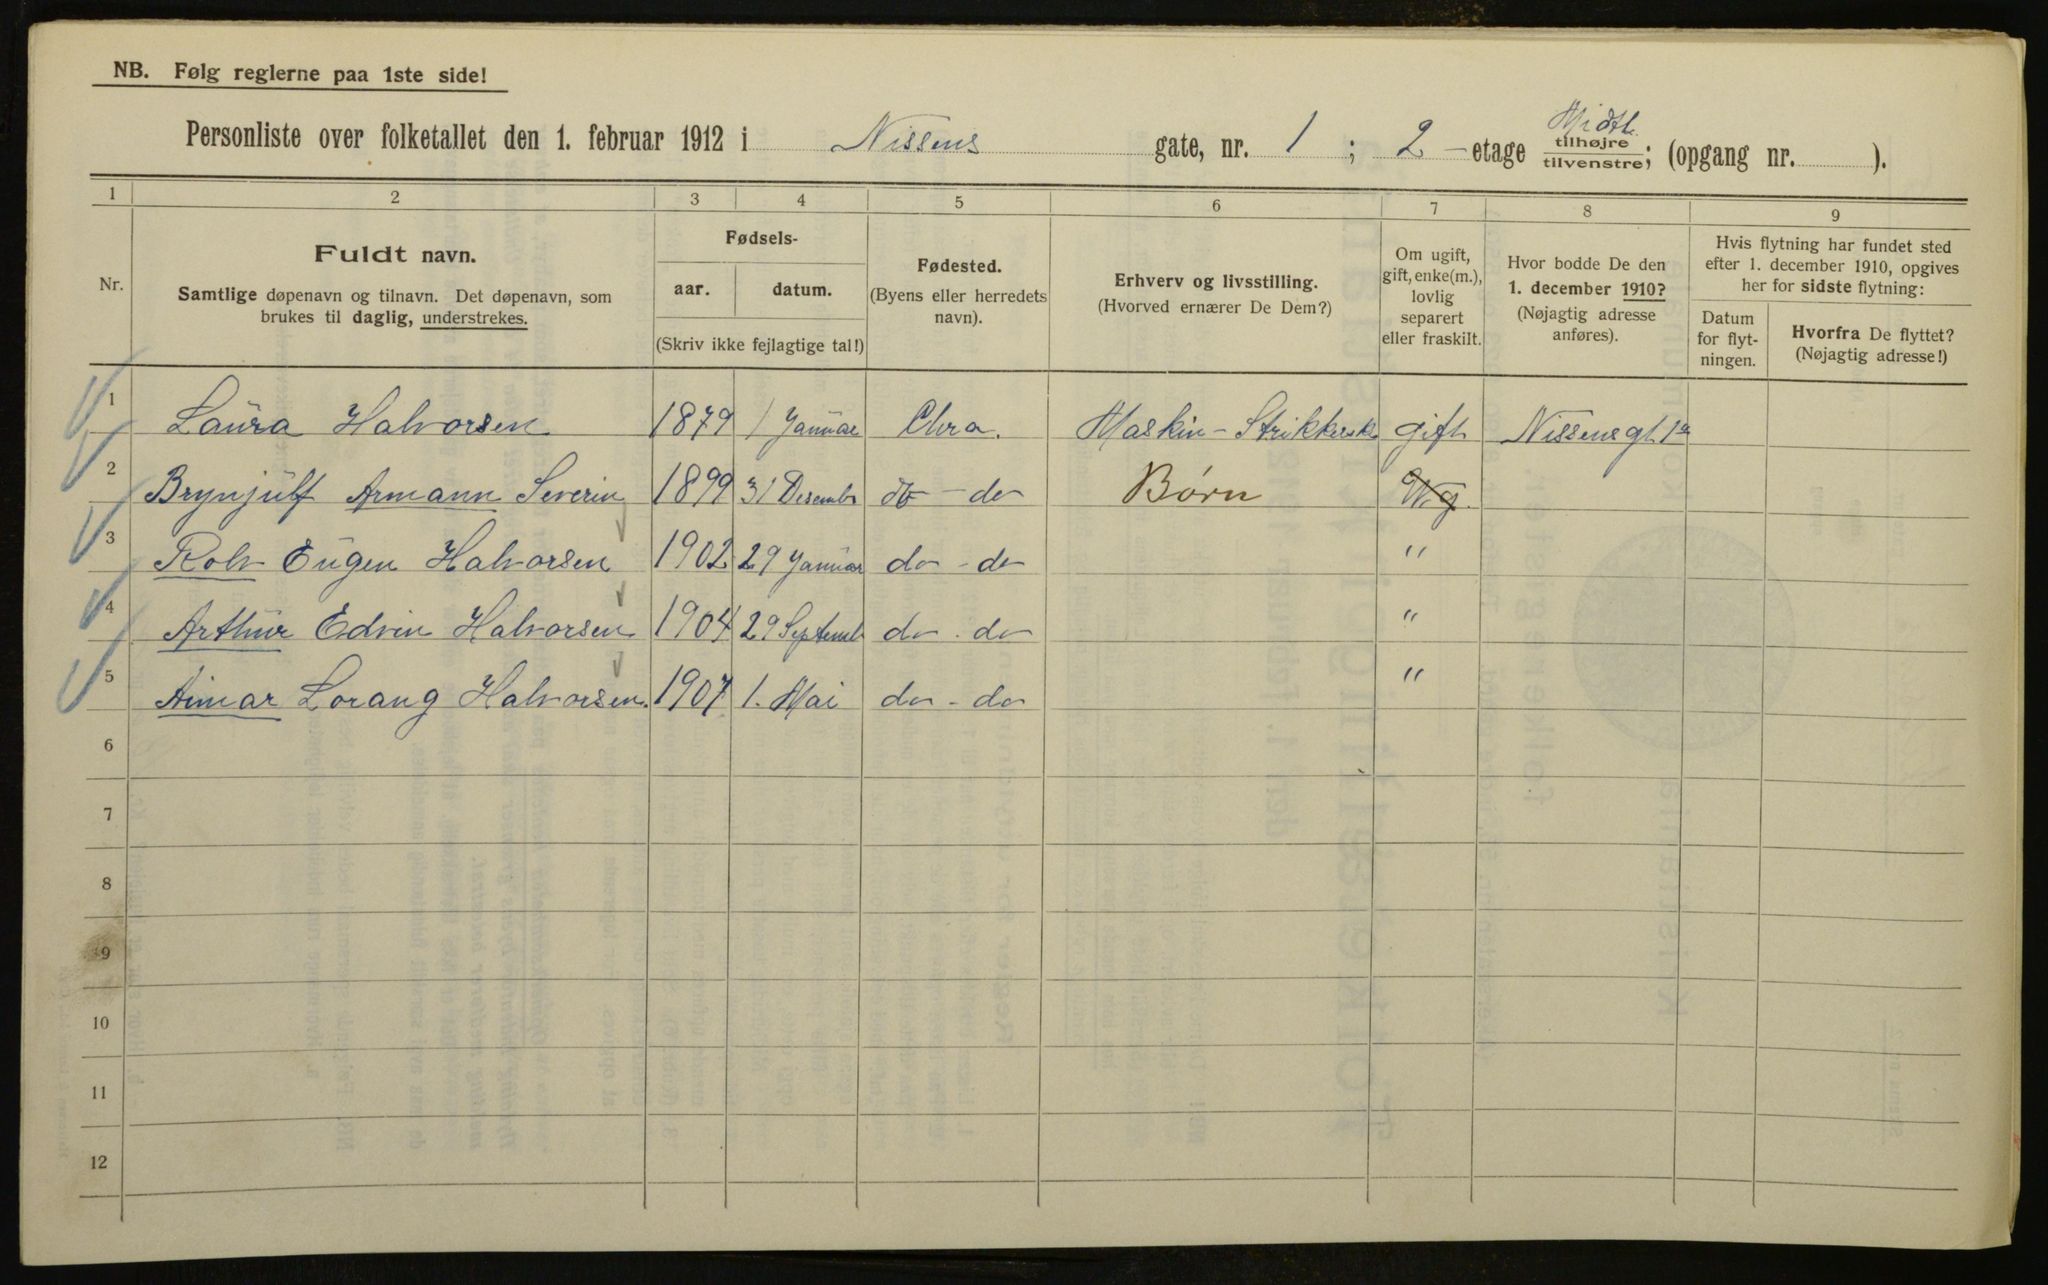 NB. Følg reglerne paa 1ste side!
Midtl.
Personliste over folketallet den 1. februar 1912 i Nissens gate, nr. 1; 2 - etage tilhøjre tilvenstre; (opgang nr. ).
1 2 3 4 5 6 7 8 9
Nr.
Fuldt navn.
Samtlige døpenavn og tilnavn. Det døpenavn, som
brukes til daglig, understrekes.
Fødsels-
aar. datum.
(Skriv ikke fejlagtige tal!)
Fødested.
(Byens eller herredets
navn).
Erhverv og livsstilling.
(Hvorved ernærer De Dem?)
Om ugift,
gift, enke(m.),
lovlig
separert
eller fraskilt.
Hvor bodde De den
1. december 1910?
(Nøjagtig adresse
anføres).
Hvis flytning har fundet sted
efter 1. december 1910, opgives
her for sidste flytning:
Datum
for flyt-
ningen.
Hvorfra De flyttet?
(Nøjagtig adresse!)
1 Laura Halvorsen 1879 1 Januar Chra. Maskin - gift Nissensgt 1a
2 Brynjulf Armann Severin 1899 31 Desembr do - do Børn Ug.
3 Rolv Eugen Halvorsen 1902 29 Januar do - do "
4 Arthur Edvin Halvorsen 1904 29 Septemb do - do "
5 Aimar Lorang Halvorsen. 1907 1. Mai do - do "
6
7
8
9
10
11
12